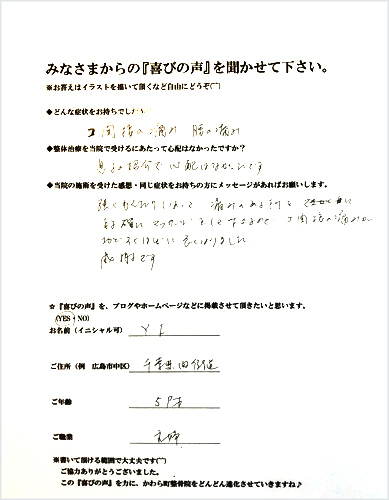 みなさまからの『喜びの声』を聞かせて下さい。
※お答えはイラストを描いて頂くなど自由にどうぞ(^^)
◆どんな症状をお持ちでしたか？
関接の痛み 腰の痛み
◆整体治療を当院で受けるにあたって心配はなかったですか？
心配はなかったです
◆当院の施術を受けた感想・同じ症状をお持ちの方にメッセージがあればお願いします。
痛みのある所を
マッサージをして下さるので 関接の痛みが
感謝です
☆『喜びの声』を、ブログやホームページなどに掲載させて頂きたいと思います。
(YES・NO)
お名前（イニシャル可） Y I
ご住所（例 広島市中区） 千葉県四街道
ご年齢 5
ご職業 主婦
※書いて頂ける範囲で大丈夫です(^^)
ご協力ありがとうございました。
この『喜びの声』を力に、かわら町整骨院をどんどん進化させていきますね♪